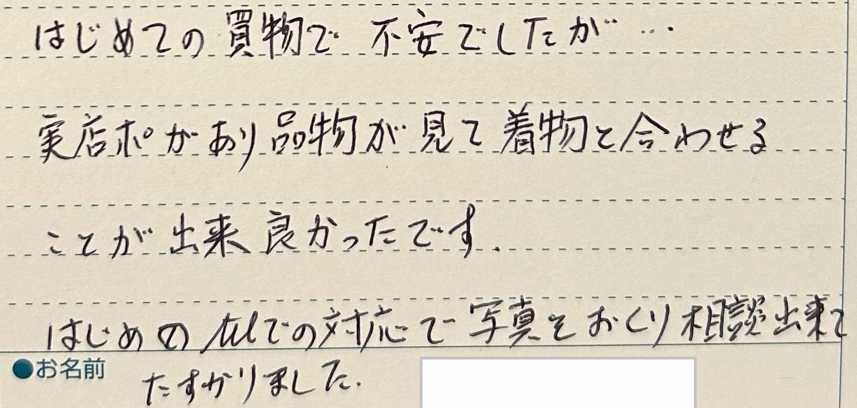 はじめての買物で 不安でしたが…
実店ポがあり品物が見て着物と合わせる
ことが出来良かったです.
はじめのTelでの対応で写真をおくり相談出来て
●お名前
たすかりました.